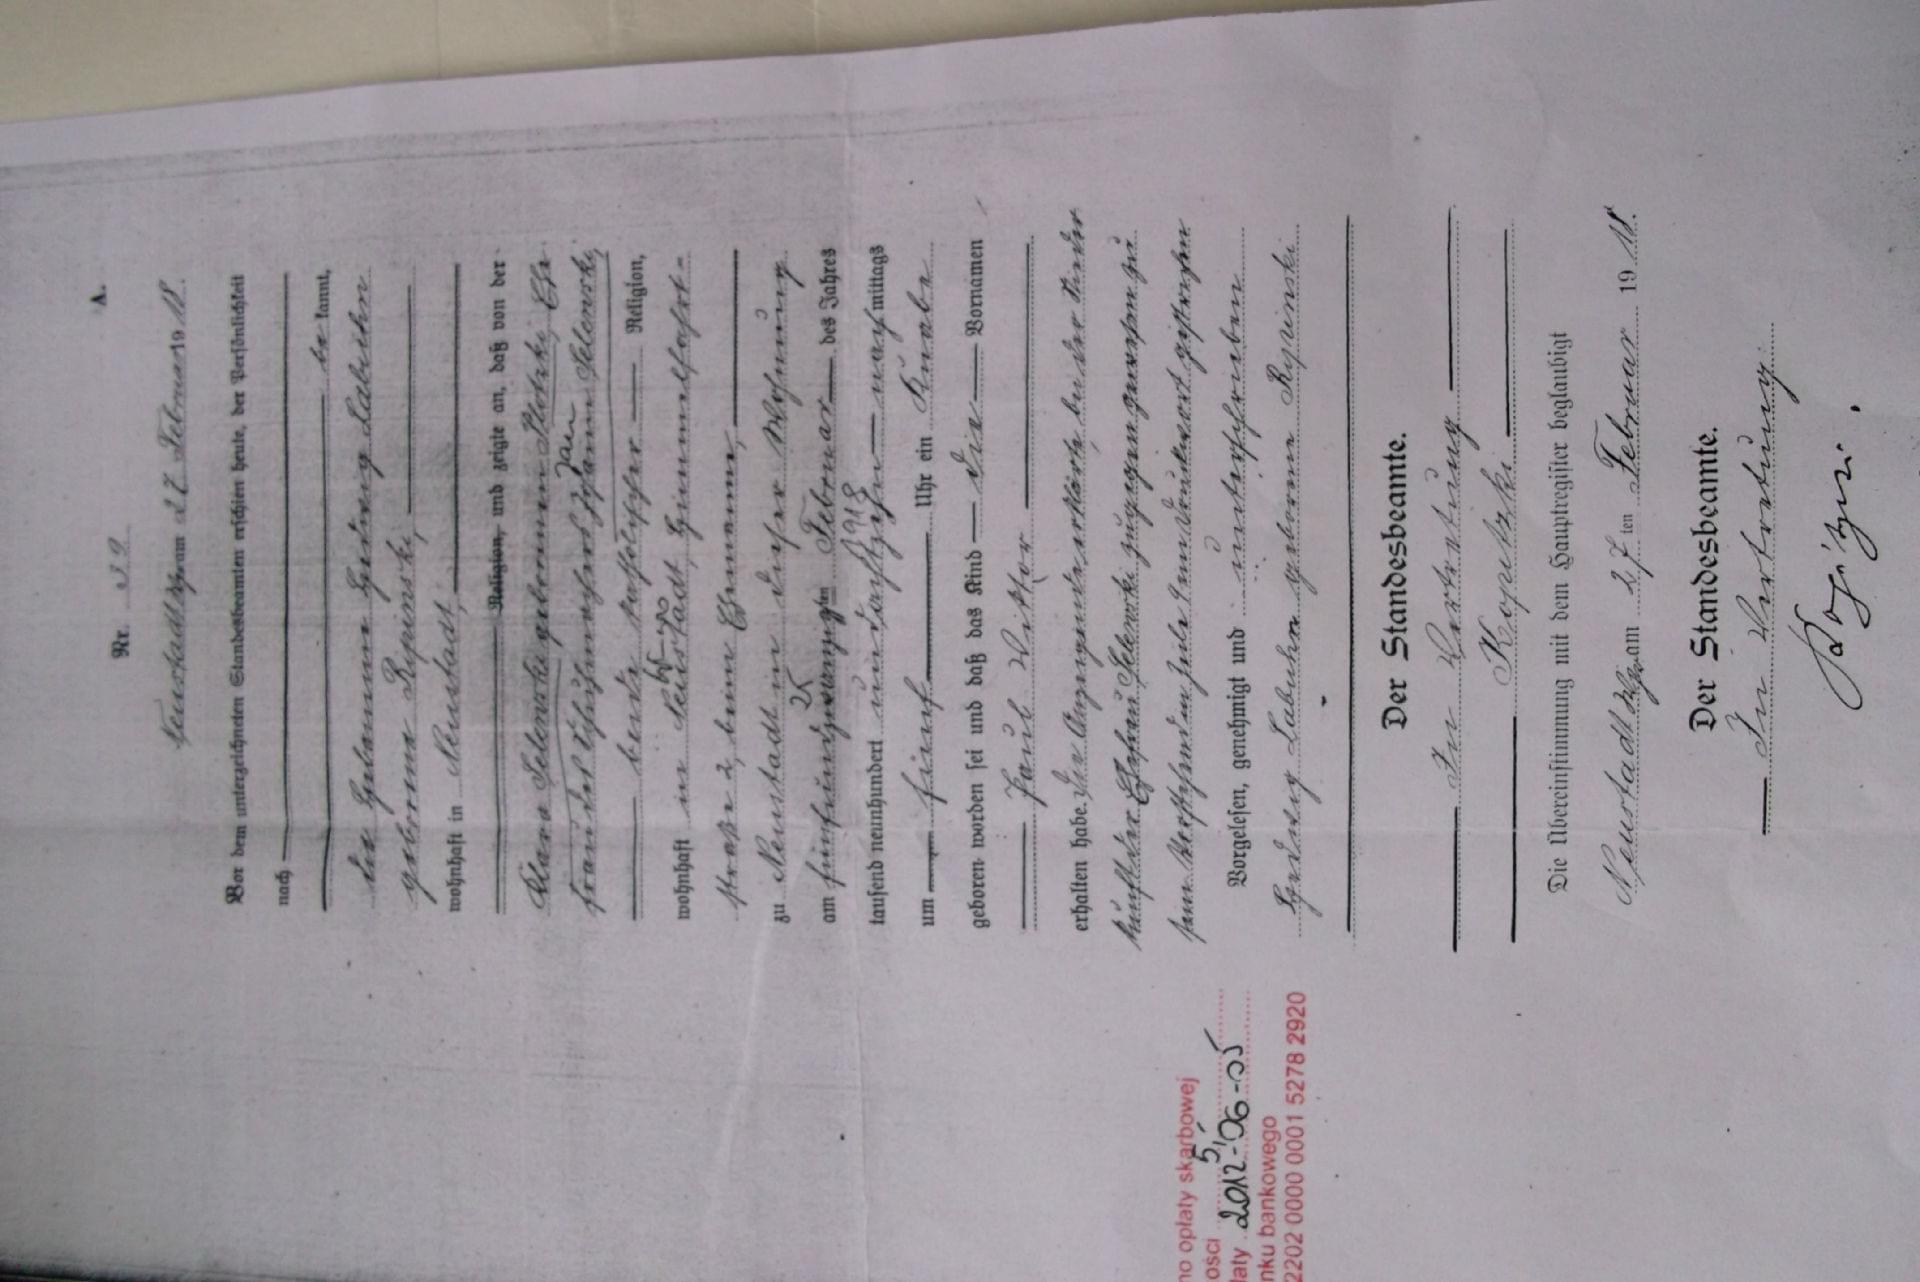 A.
Nr. 39
Neustadt Wpr. am 27 Februar 19 18.
Vor dem unterzeichneten Standesbeamten erschien heute, der Persönlichkeit
nach
be kannt,
die Hebamme Hedwig Labuhn
geborene Rypinski,
wohnhaft in Neustadt,
Religion, und zeigte an, daß von der
Clara Selewski geborenen Klotzki, Ehe-
frau des Johann Selewski,
Jan
beide katholischer Religion,
wohnhaft in Neustadt, Himmelfahrt-
straße 2, beim Ehemanne,
zu Neustadt in dieser Wohnung
am fünfundzwanzigsten Februar des Jahres
25
1918
tausend neunhundert und achtzehn nachmittags
um fünf Uhr ein Knabe
geboren worden sei und daß das Kind die Vornamen
Paul Wiktor
erhalten habe. Die Anzeigende erklärte, bei der Nieder-
kunft der Ehefrau Selewski zugegen gewesen zu
sein. Vorstehend Zeile 9 ein Druckwort gestrichen
Vorgelesen, genehmigt und unterschrieben
Hedwig Labuhn geborene Rypinski
Der Standesbeamte.
In Vertretung
Kopitzki
Die Übereinstimmung mit dem Hauptregister beglaubigt
Neustadt Wpr. am 27 ten Februar 19 18.
Der Standesbeamte.
In Vertretung:
no opłaty skarbowej
ości 5,
łaty 2012-06-05
nku bankowego
2202 0000 0001 5278 2920